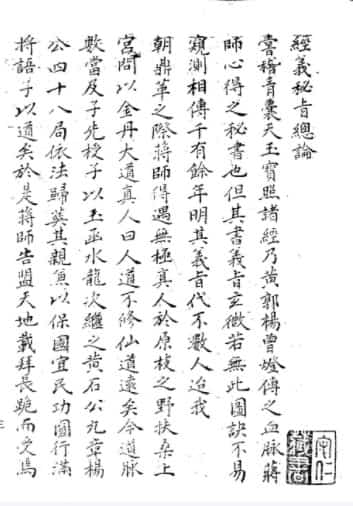 經義秘旨總論
嘗稽青囊天玉寶照諸經乃黃郭楊曾燈傳之血脉蔣
師心得之秘書也但其書義旨玄微若無此圖訣不易
窺測相傳千有餘年明其義旨代不數人迨我
朝鼎革之際蔣師得遇無極真人於原𣏌之野扶桑上
宮問以金丹大道真人曰人道不修仙道遠矣今道脉
數當及子先授子以玉函水龍次繼之黃石公九章楊
公四十八局依法歸塟其親魚以保國宜民功圓行滿
將語子以道矣於是蔣師告盟天地載拜長跪而受焉